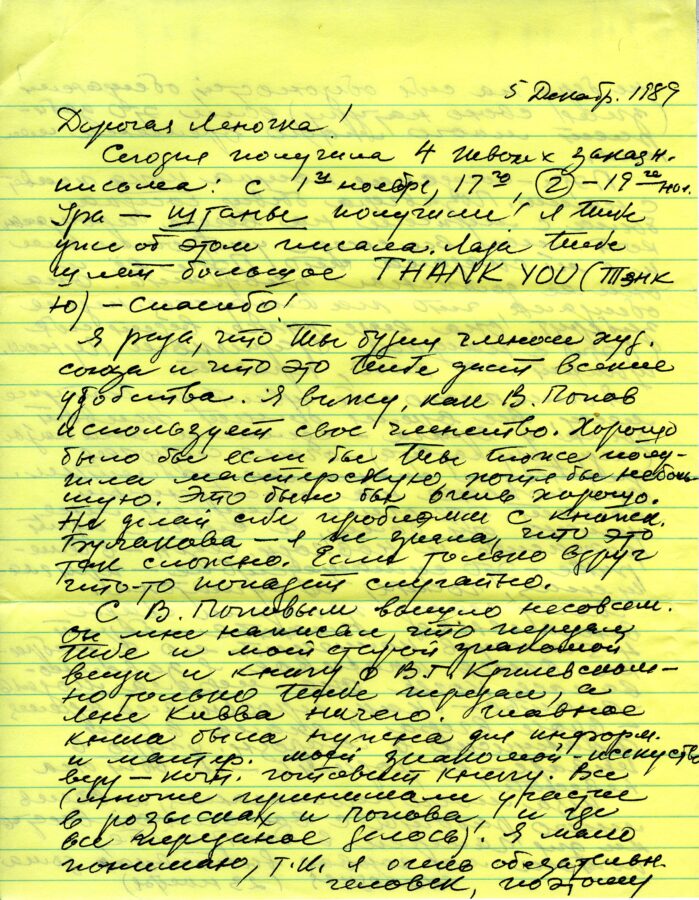 5 Декабр. 1989
Дорогая Леночка!
Сегодня получила 4 твоих заказн.
письма: с 1го ноября, 17го, (2) – 19го но.
Ура – штаны получили! Я тебе
уже об этом писала. Лада тебе
шлет большое THANK YOU (Тэнк
Ю) – спасибо!
Я рада, что ты будеш членом худ.
союза и что это тебе даст всякие
удобства. Я вижу, как В. Попов
использует свое членство. Хорошо
было бы если бы ты тоже полу-
чила мастерскую, хотя бы неболь-
шую. Это было бы очень хорошо.
Не делай себе проблемы с книжк.
Булгакова – я не знала, что это
так сложно. Если только вдруг
что-то попадет случайно.
С В. Поповым вышло несовсем.
он мне написал, что передал
тебе и моей старой знакомой
вещи и книгу о В.Г. Кричевском –
но только тебе передал, а
Лене Кивва ничего. Главное
книга была нужна для информ.
и матер. моей знакомой-исскуство
веду – кот. готовит книгу. Все
(многие принимали участие
в розысках и Попова, и где
все переданое делось)! Я мало
понимаю, т.к. я очень обезательн.
человек, поэтому